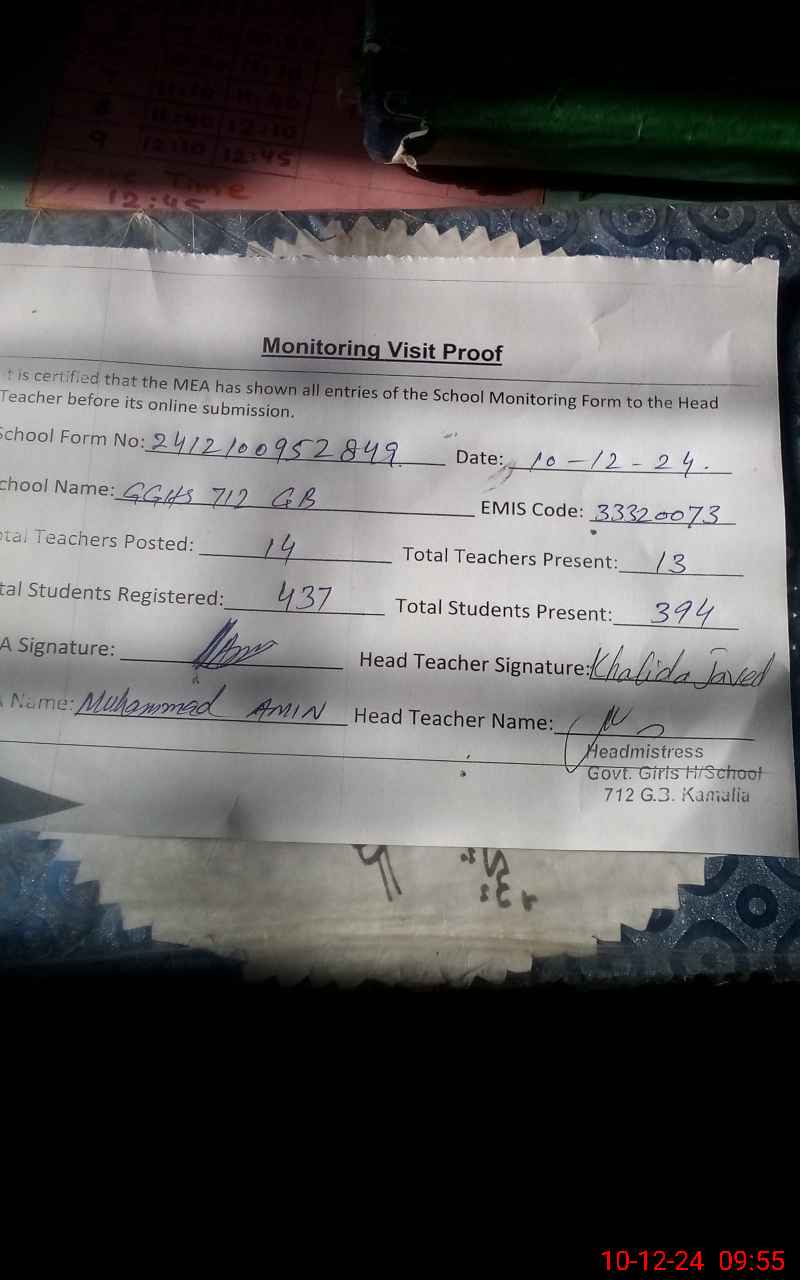 8 11:40 12:10
9 12:10 12:45
Time
12:45
Monitoring Visit Proof
t is certified that the MEA has shown all entries of the School Monitoring Form to the Head
Teacher before its online submission.
School Form No: 2412100952849 Date: 10-12-24.
chool Name: GGHS 712 GB EMIS Code: 33320073
otal Teachers Posted: 14 Total Teachers Present: 13
tal Students Registered: 437 Total Students Present: 394
A Signature: Head Teacher Signature: Khalida Javed
Name: Muhammad AMIN Head Teacher Name:
Headmistress
Govt. Girls H/School
712 G.B. Kamalia
10-12-24 09:55